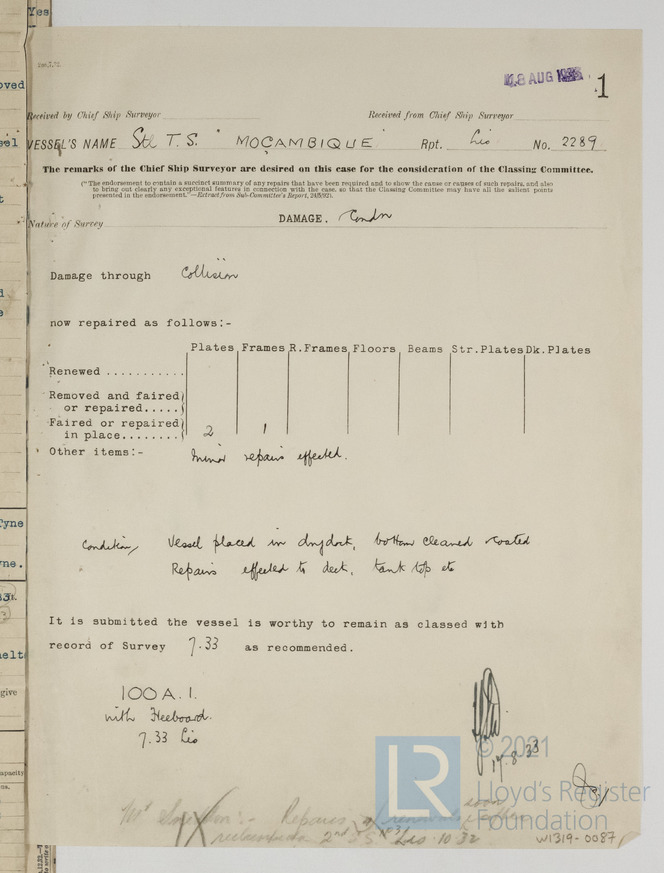 Yes
18 AUG 1933
1
Received by Chief Ship Surveyor
Received from Chief Ship Surveyor
VESSEL'S NAME Stl T.S. "MOÇAMBIQUE" Rpt. Lis No. 2289
The remarks of the Chief Ship Surveyor are desired on this case for the consideration of the Classing Committee.
("The endorsement to contain a succinct summary of any repairs that have been required and to show the cause or causes of such repairs, and also
to bring out clearly any exceptional features in connection with the case, so that the Classing Committee may have all the salient points
presented in the endorsement."—Extract from Sub-Committee's Report, 24/5/92).
Nature of Survey DAMAGE. Condn
Damage through Collision
now repaired as follows:-
Plates Frames R.Frames Floors Beams Str.Plates Dk.Plates
Renewed ...........
Removed and faired
or repaired.....
Faired or repaired
in place........ 2 1
Other items:- Minor repairs effected.
Condition Vessel placed in drydock, bottom cleaned & coated
Repairs effected to deck, tank top etc
It is submitted the vessel is worthy to remain as classed with
record of Survey 7.33 as recommended.
100A.1.
with Freeboard.
7.33 Lis
17.8.33
© 2021
Lloyd's Register
Foundation
LR
Repairs
2nd
Lis 10.32
W1319-0087